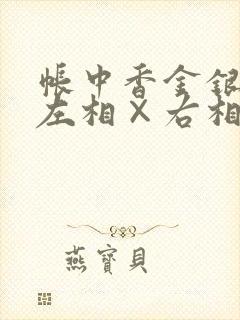 帳中香金銀
左相×右相
燕寶貝